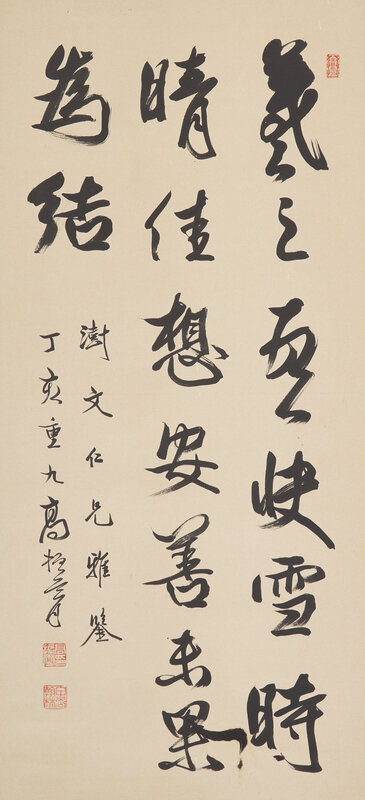 羲之頓首快雪時
晴佳想安善未果
為結
澍文仁兄雅鑒
丁亥重九高振霄